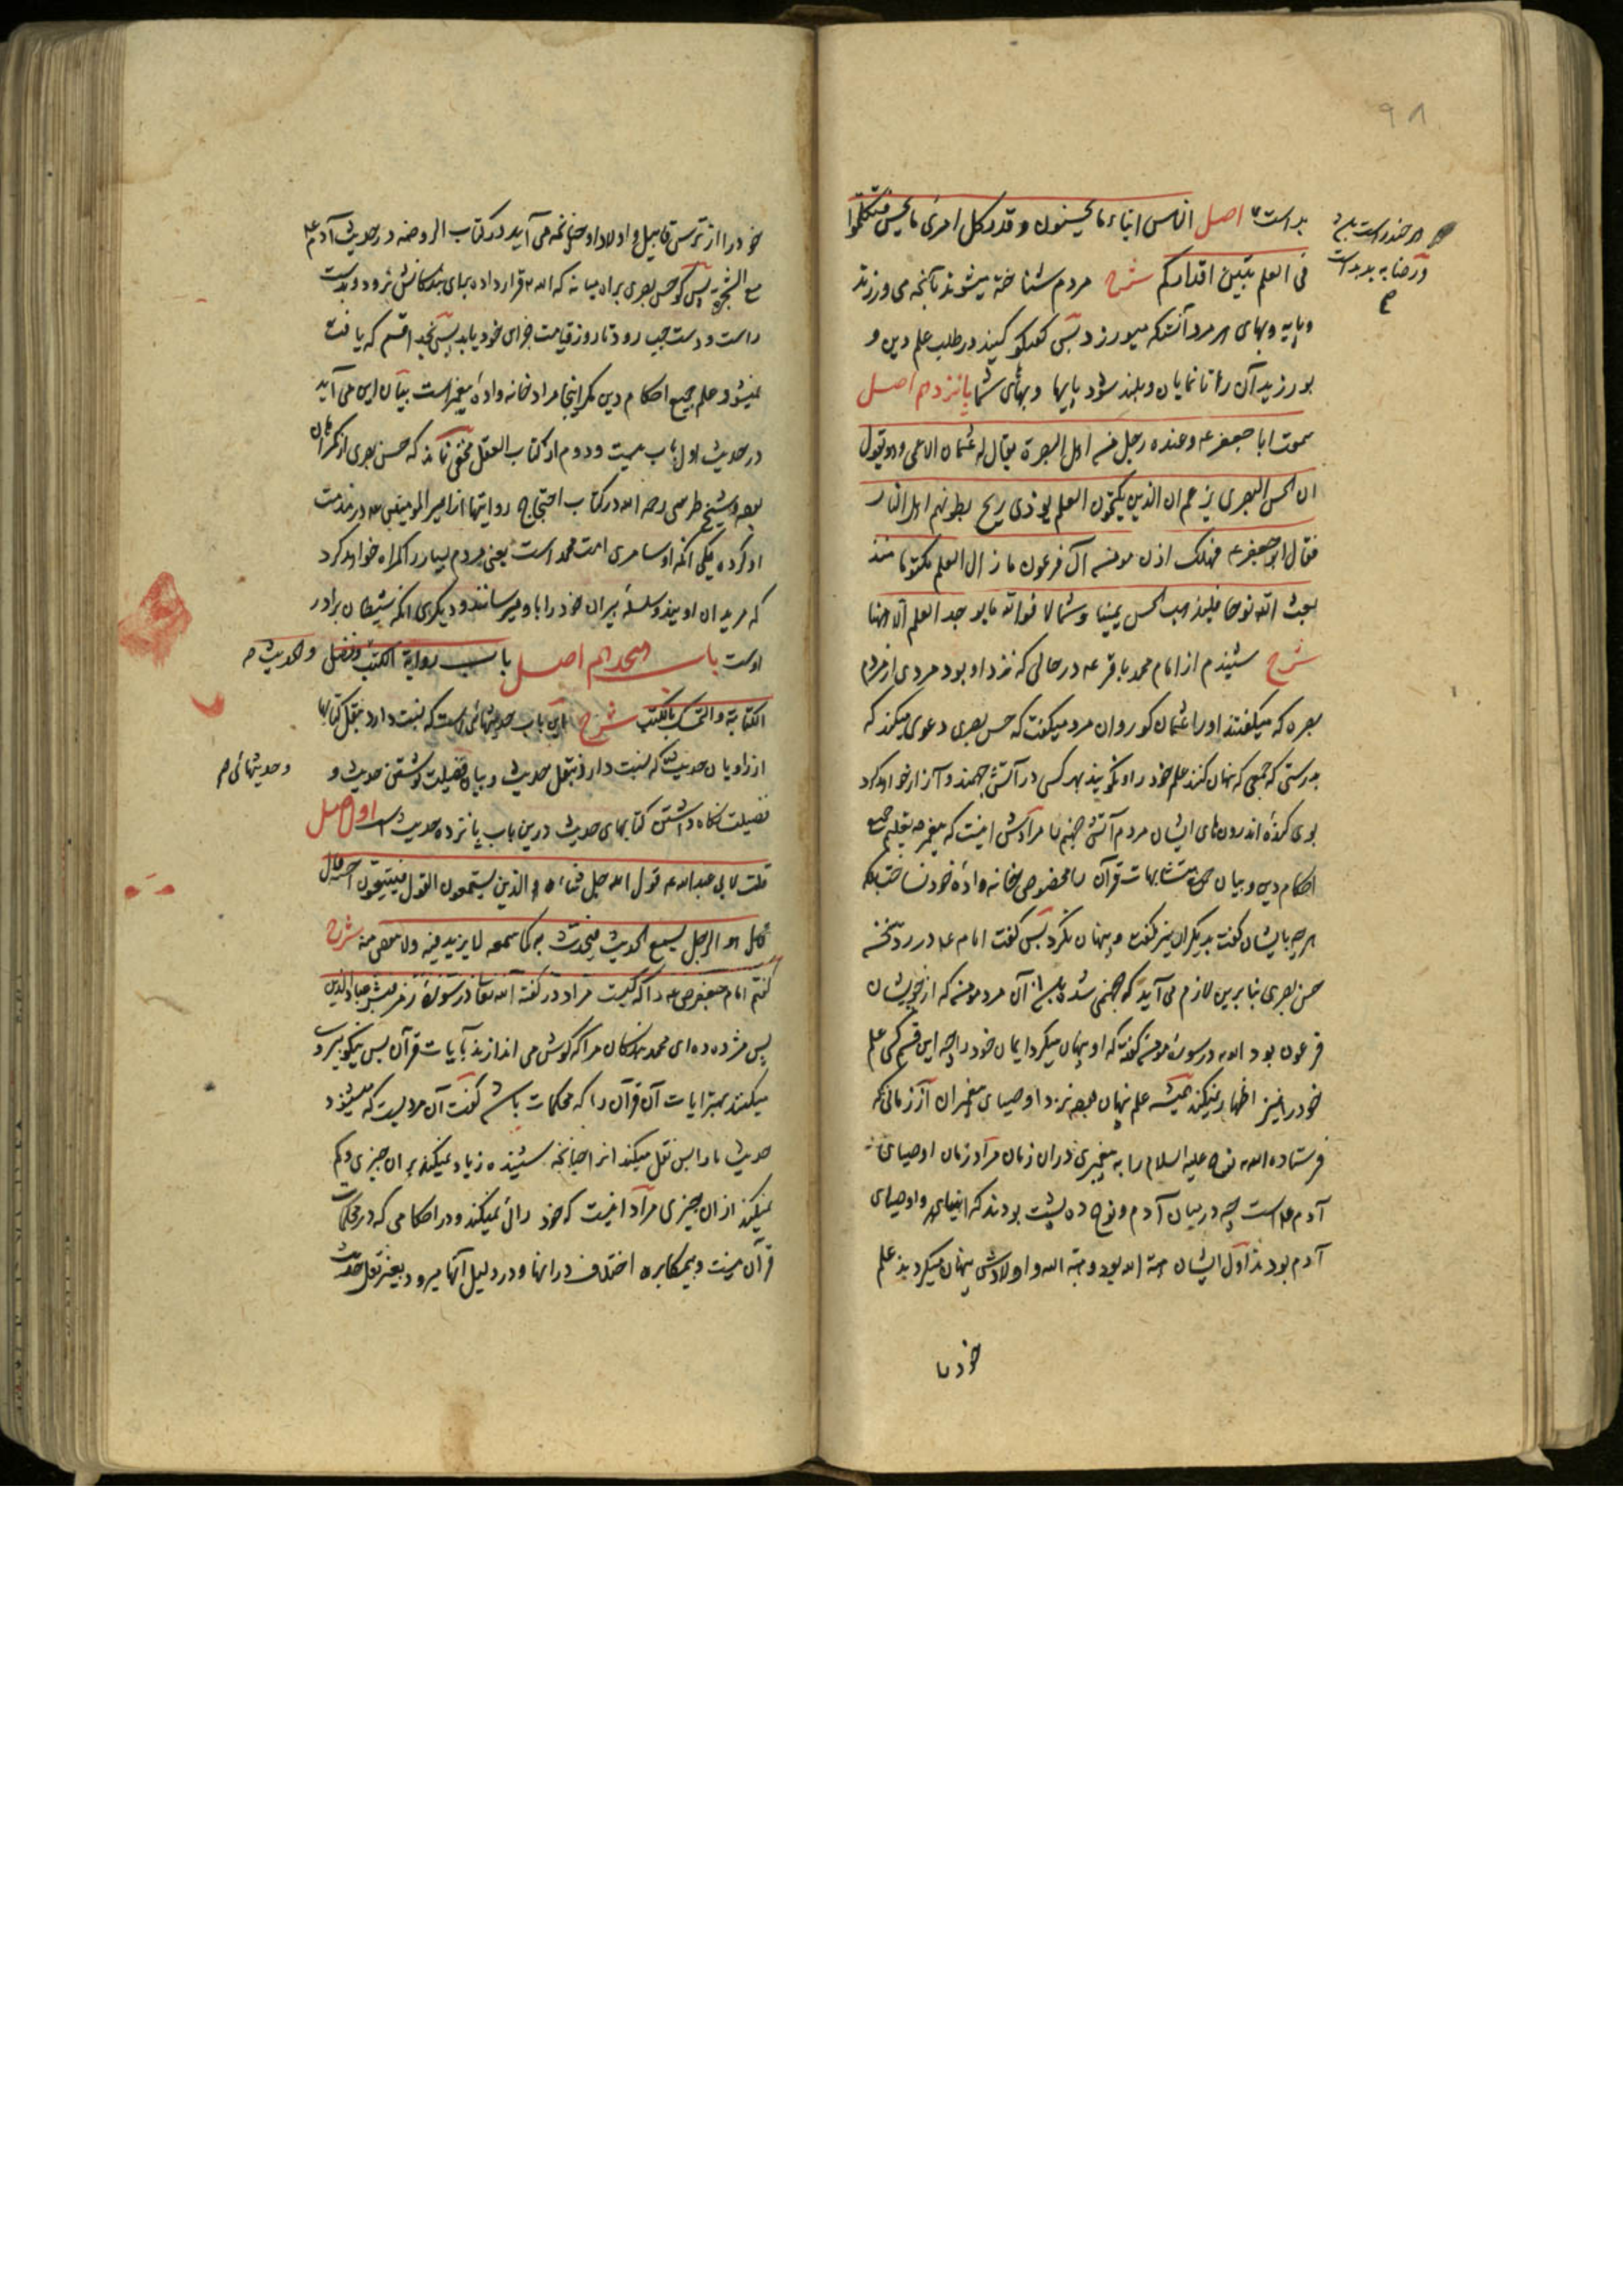 ۹۸
بد است اصل الناس ابناء ما یحسنون و قدر کل امرئ ما یحسن فتکلموا
فی العلم تبین اقدارکم شرح مردم شناخته میشوند بآنچه می ورزند
و پایه و بهای هر مرد آنست که میورزد پس گفتگو کنید در طلب علم دین و
بورزید آن را تا نمایان و بلند شود پایها و بهای شما پانزدهم اصل
سمعت ابا جعفر ع و عنده رجل من اهل البصرة یقال له عثمان الاعمی و هو یقول
ان الحسن البصری یزعم ان الذین یکتمون العلم یوذی ریح بطونهم اهل النار
فقال ابو جعفر ع فهلک اذن مومن آل فرعون ما زال العلم مکتوما منذ
بعث الله نوحا فلیذهب الحسن یمینا و شمالا فوالله ما یوجد العلم الا ههنا
شرح شنیدم از امام محمد باقر ع در حالی که نزد او بود مردی از مردم
بصره که میگفتند او را عثمان کور و آن مرد میگفت که حسن بصری دعوی میکند که
بدرستی که جمعی که پنهان کنند علم خود را و نگویند بهر کسی در آتش جهنمند و آزار خواهد کرد
بوی گنده اندرون های ایشان مردم آتش جهنم را مرادش اینست که پیغمبر ص تعلیم جمیع
احکام دین و بیان متشابهات قرآن را مخصوص خانه واده خود نساخت بلکه
هر چه بایشان گفت بدیگران نیز گفت و پنهان نکرد پس گفت امام ع در رد سخن
حسن بصری بنا برین لازم می آید که جهنمی شده باشد آن مرد مومن که از خویشان
فرعون بود الله در سوره مومن گفته که او پنهان میکرد ایمان خود را چه این قسم کسی علم
خود را نیز اظهار نمیکند همیشه علم پنهان بوده نزد اوصیای پیغمبران از زمانی که
فرستاده الله نوح علیه السلام را به پیغمبری در ان زمان مراد زمان اوصیای
آدم ع است چه در میان آدم و نوح ده پشت بودند که انبیای و اوصیای
آدم بودند اول ایشان هبة الله بود و هبة الله و اولادش پنهان میکردند علم
خود را
هر چند راست
و رضا به بد بد است
خود را از ترس قابیل و اولاد او چنانچه می آید در کتاب الروضه در حدیث آدم ع
مع الشجرة پس گو حسن بصری براه میانه که الله قرار داده برای بندگانش نرود و بدست
راست و دست چپ رود تا روز قیامت جزای خود یابد پس بخدا قسم که یافت
نمیشود علم جمیع احکام دین مگر اینجا مراد خانه واده پیغمبر است بیان این می آید
در حدیث اول باب بیست و دوم از کتاب العقل مخفی نماند که حسن بصری از گمراهان
بوده و شیخ طبرسی رحمه الله در کتاب احتجاج روایتها از امیر المومنین ع در مذمت
او کرده یکی آنکه او سامری امت محمد است یعنی مردم بسیار را گمراه خواهد کرد
که مریدان اویند و سلسله پیران خود را باو میرسانند و دیگری آنکه شیطان برادر
اوست باب هجدهم اصل باب روایة الکتب و فضل والحدیث
الکتابة والتمسک بالکتب شرح این باب حدیثهائی است که نسبت دارد بنقل کتابها
از راویان حدیث که نسبت دارد بنقل حدیث و بیان فضیلت نوشتن حدیث و
و حدیثهائی
فضیلت نگاه داشتن کتابهای حدیث درین باب پانزده حدیث است اول اصل
قلت لابی عبدالله ع قول الله جل ثناءه الذین یستمعون القول فیتبعون احسنه قال
قال هو الرجل یسمع الحدیث فیحدث به کما سمعه لا یزید فیه ولا ینقص منه شرح
گفتم امام جعفر ص ع را که کیست مراد در گفته الله تعالی در سوره زمر فبشر عباد الذین
پس مژده ده ای محمد بندگان مرا که گوش می اندازند بآیات قرآن پس نیکو پیروی
میکنند بهتر ایات آن قرآن را که محکمات باشد گفت آن مردیست که میشنود
حدیث ما را پس نقل میکند انرا چنانچه شنیده زیاد نمیکند بر ان چیزی و کم
نمیکند از ان چیزی مراد اینست که خود رائی نمیکند و در احکامی که در محکمات
قرآن نیست و بیمکابره اختلاف در انها و در دلیل آنها میرود بغیر نقل حدیث